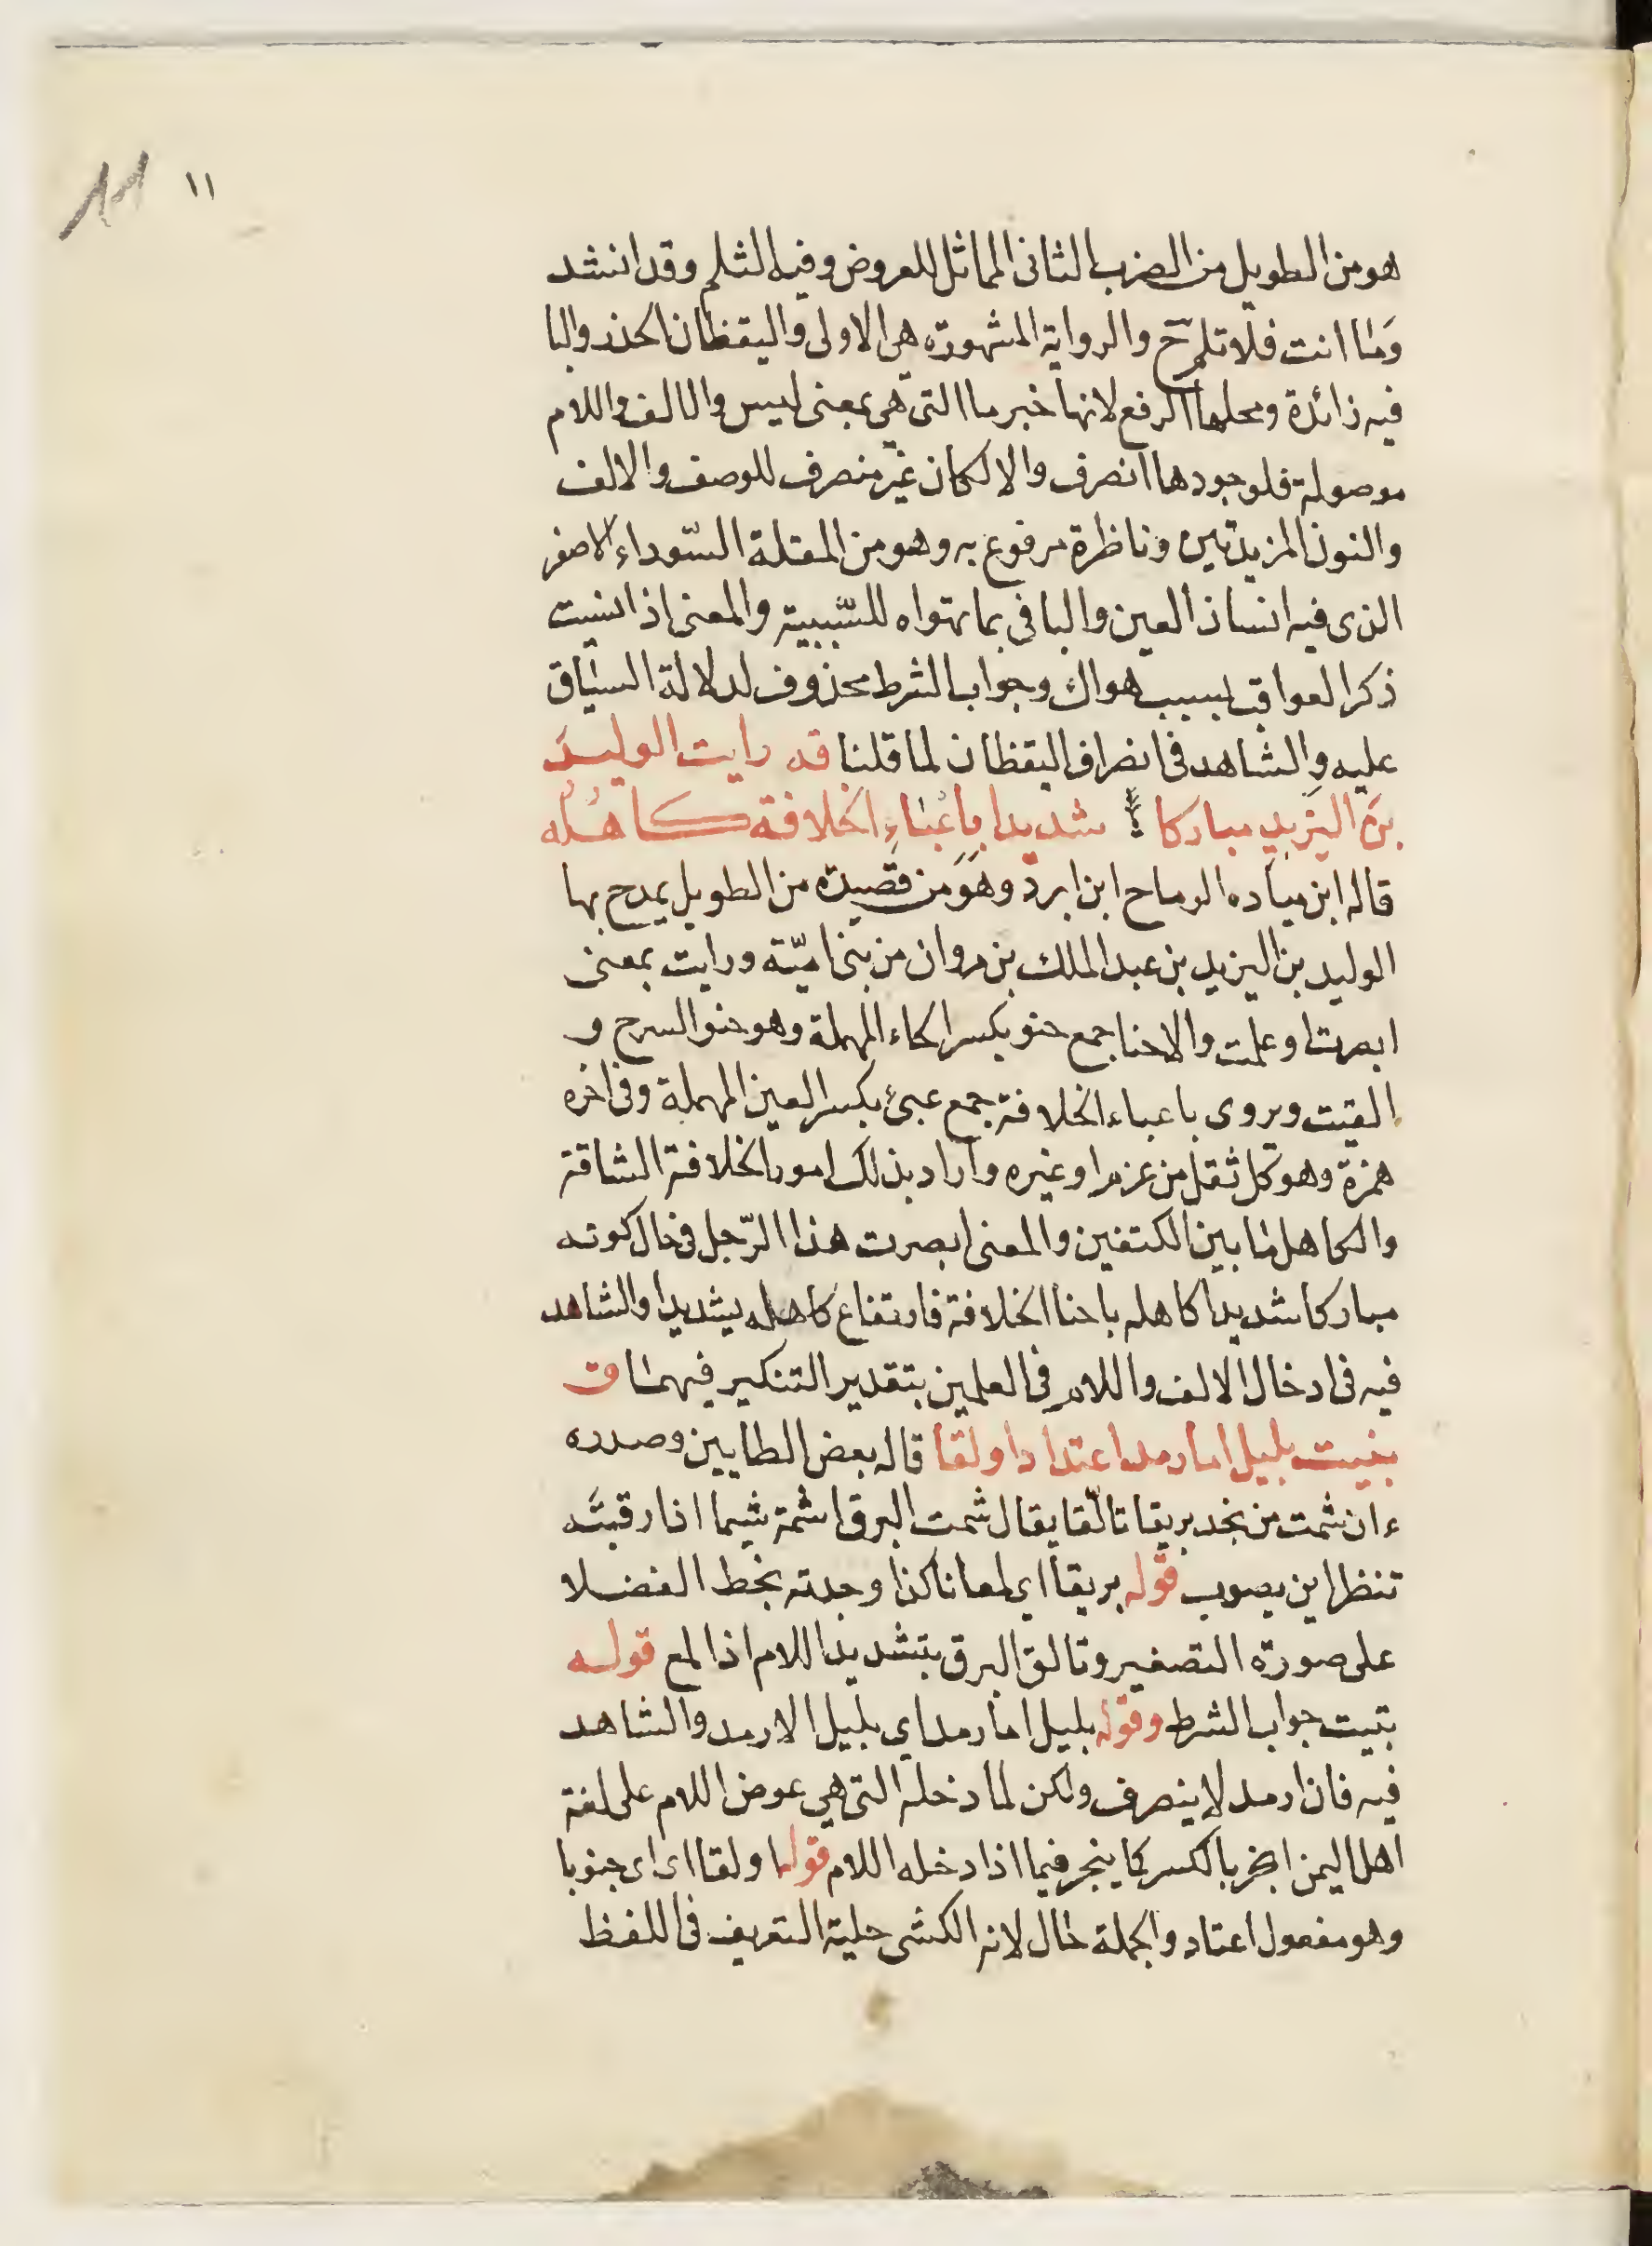 ١١
11
هو من الطويل من الضرب الثانى المماثل للعروض وفيه الثلم وقد انشد
وَمٰا انت فلا تلم ح والرواية المشهورة هي الاولى واليقظان الحذر والبا
فيه زائدة ومحلها الرفع لانها خبر ما التى هي بمعنى ليس والالف واللام
موصولة فلوجودها انصرف والا لكان غير منصرف للوصف والالف
والنون المزيدتين وناظرة مرفوع به وهو من المقلة السّوداء الاصغر
الذى فيه انسان العين والبا فى بما تهواه للسّببية والمعنى اذا نسيت
ذكر العواقب بسبب هواك وجواب الشرط محذوف لدلالة السيٰاق
عليه والشاهد فى انصراف اليقظان لما قلنا قد رايت الوليدَ
بنَ اليَزيدِ مباركا شديدا باَعْبٰاءِ الخلافة كاهُلُه
قاله ابن مياده الرماح ابن ابرد وهو من قصيدة من الطويل يمدح بها
الوليد بن اليزيد بن عبد الملك بن مروان من بنى اميّة ورايت بمعنى
ابصرت او علمت والاحنا جمع حنو بكسر الحاء المهملة وهو حنو السرج و
القتب ويروى باعباء الخلافة جمع عبئ بكسر العين المهملة وفى اخره
همزة وهو كل ثقل من غزم او غيره واراد بذلك امور الخلافة الشاقة
والكاهل مٰا بين الكتفين والمعنى ابصرت هذا الرّجل فى حال كونه
مباركا شديدا كاهله باحنا الخلافة فارتفاع كاهله بشديدا والشاهد
فيه فى ادخال الالف واللام فى العلمين بتقدير التنكير فيهمٰا ق
بتيت بليل امارمد اعتداد اولقا قاله بعض الطايين وصدره
ء ان شمت من نجد بريقا تالّقا يقال شمت البرق اشمة شيما اذا رقبتَه
تنظر اين يصوب قوله بريقا اى لمعانا كذا وجدته بخط الفضلا
على صورة التصغير وتالق البرق بتشديد اللام اذا لمع قوله
بتيت جواب الشرط وقوله بليل امارمد اي بليل الارمد والشاهد
فيه فان ارمد لا ينصرف ولكن لما دخله التى هي عوض اللام على لغة
اهل اليمن انجر بالكسر كما ينجر فيما اذا دخله اللام قوله اولقا اى اى جنونا
وهو مفعول اعتاد والجملة حٰال لانه الكشى حلية التعريف فى اللفظ